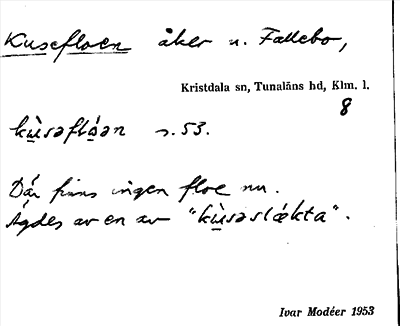 Kusefloen åker u. Fallebo,
Kristdala sn, Tunaläns hd, Klm. l.
8
kùsəflóan s. 53.
Där finns ingen floe nu.
Ägdes av en av "kùsəslǽkta".
Ivar Modéer 1953